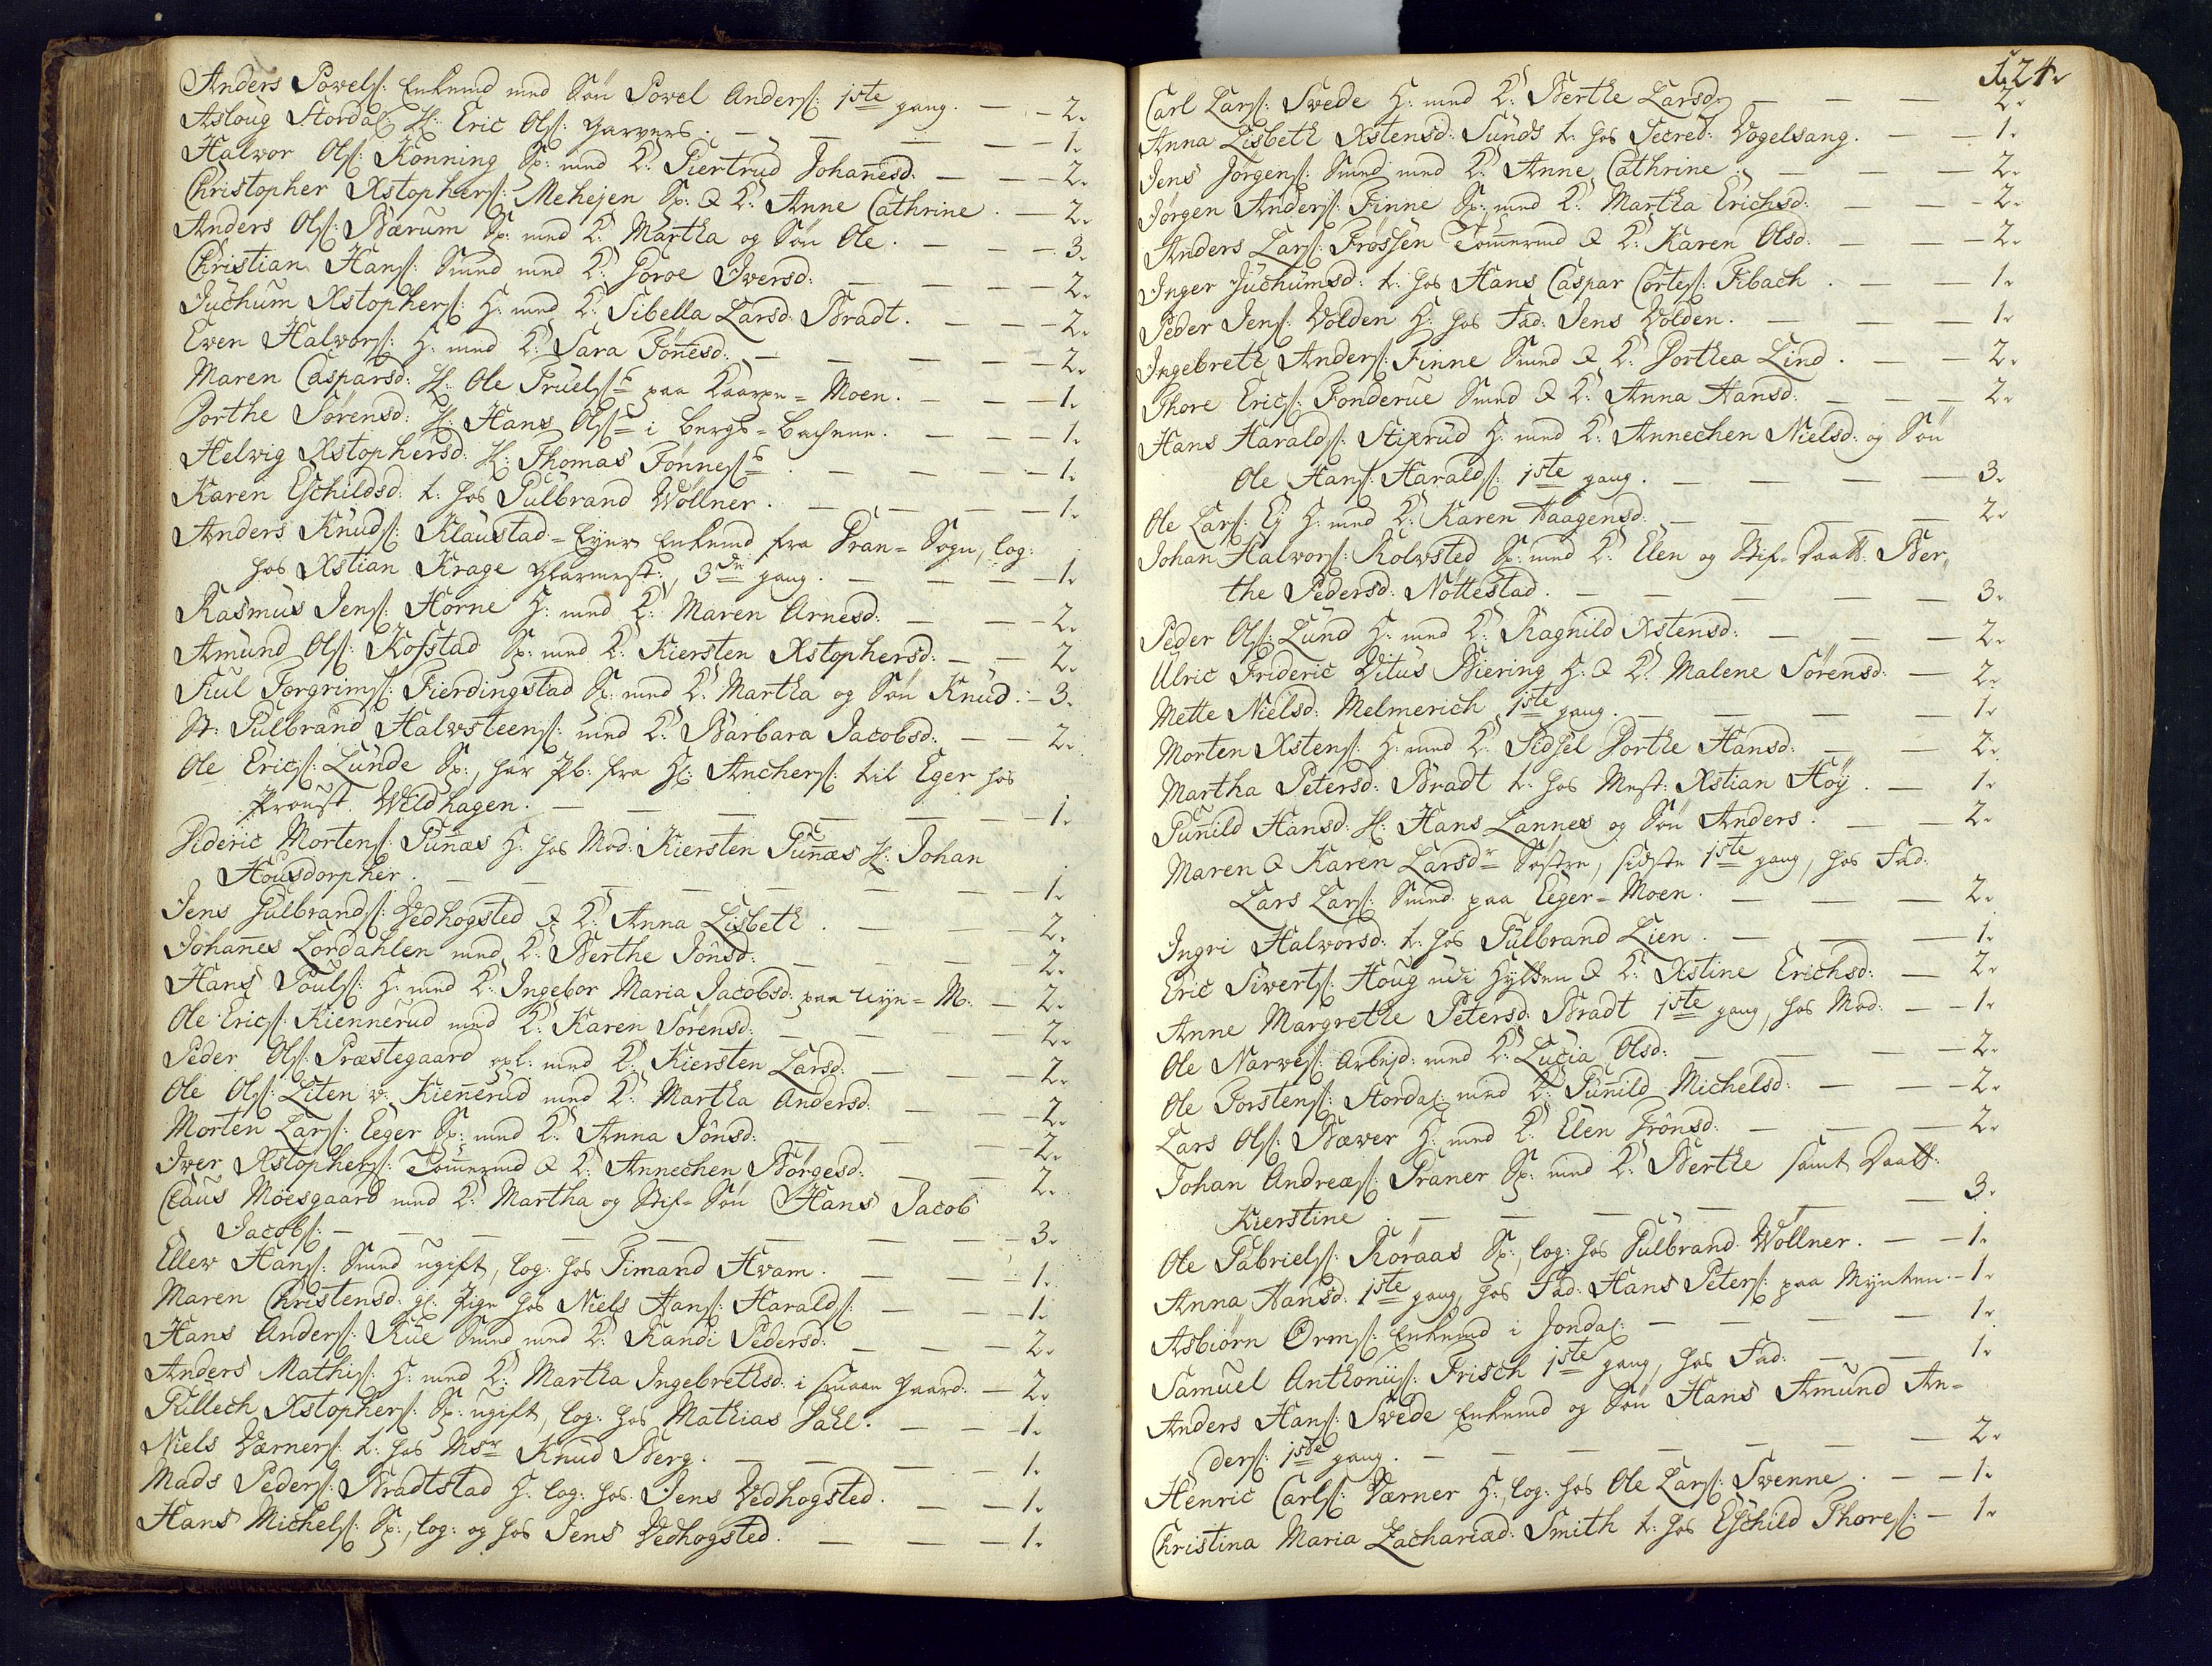 Anders Povels: Enkemd med Søn Povel Anders: 1ste gang. — 2.
Asloug Stordal: H: Eric Ols: Garvers. — — — 1.
Halvor Ols: Konning Sp: med K: Giertrud Johanesd: — — 2.
Christopher Xstophers: Mehejen Sp: & K: Anne Cathrine. — 2.
Anders Ols: Bærum Sp: med K: Martha og Søn Ole. — — 3.
Christian Hans: Smed med K: Goroe Iversd: — — 2.
Juchum Xstophers: H: med K: Sibella Larsd: Bradt. — — 2.
Even Halvors: H: med K: Sara Tönesd: — — — 2.
Maren Caspersd: H: Ole Truels: paa Kaarpe=Moen. — — 1.
Dorthe Sörensd: H: Hans Ols: i Bergs=Bachene. — — 1.
Helvig Xstophersd: H: Thomas Tönnes: — — — 1.
Karen Eschildsd: t: hos Gulbrand Wöllner. — — — 1.
Anders Knuds: Klaustad=Ejer Enkemd fra Gran=Sogn, log:
hos Xstian Krage Glarmest:, 3die gang. — — 1.
Rasmus Jens: Horne H: med K: Maren Arnesd: — — 2.
Amund Ols: Kofstad Sp: med K: Kiersten Xstophersd: — — 2.
Siul Torgrims: Fierdingstad Sp: med K: Martha og Søn Knud. — 3.
St: Gulbrand Halvsteens: med K: Barbara Jacobsd: — — 2.
Ole Erics: Lunde Sp:, har Pb: fra H: Anchers: til Eger hos
Proust. Wildhagen. — — — — 1.
Dideric Mortens: Gunæs H: hos Mod: Kiersten Gunæs H: Johan
Housdorpher. — — — — 1.
Jens Gulbrands: Vedhogsted & K: Anna Lisbeth. — — 2.
Johanes Lordahlen med K: Berthe Jönsd: — — 2.
Hans Pouls: H: med K: Ingebor Maria Jacobsd: paa Nye=M: — 2.
Ole Erics: Kiennerud med K: Karen Sörensd: — — 2.
Peder Ols: Præstegaard opl: med K: Kiersten Larsd: — — 2.
Ole Ols: Liten v: Kienerud med K: Martha Andersd: — — 2.
Morten Lars: Eeger Sp: med K: Anna Jönsd: — — 2.
Iver Xstophers: Tomermd & K: Annechen Börgesd: — — 2.
Claus Moesgaard med K: Martha og Stif=Søn Hans Jacob
Jacobs: — — — — 3.
Ellev Hans: Smed ugift, log: hos Simand Hvam. — — 1.
Maren Christensd: gl: Pige hos Niels Hans: Haralds: — — 1.
Hans Anders: Rue Smed med K: Randi Pedersd: — — 2.
Anders Mathis: H: med K: Martha Ingebrethsd: i Smaae Gaard. — 2.
Gullech Xstophers: Sp: ugift, log: hos Mathias Dahl. — — 1.
Niels Værners: t: hos Msr Knud Berg. — — — 1.
Mads Peders: Bradtstad H: log: hos Jens Vedhogsted. — — 1.
Hans Michels: Sp:, log: og hos Jens Vedhogsted. — — 1.
124.
Carl Lars: Svede H: med K: Berthe Larsd: — — — 2.
Anna Lisbeth Xstensd: Sunds t: hos Secred: Vogelsang. — — 1.
Jens Jörgens: Smed med K: Anne Cathrine. — — — 2.
Jörgen Anders: Finne Sp: med K: Martha Erichsd: — — 2.
Anders Lars: Frössen Tomermd & K: Karen Olsd: — — 2.
Inger Juchumsd: t: hos Hans Caspar Cortes: Fibach. — — 1.
Peder Jens: Volden H: hos Fad: Jens Volden. — — — 1.
Ingebreth Anders: Finne Smed & K: Dorthea Lind. — — 2.
Thore Erics: Fonderue Smed & K: Anna Hansd: — — 2.
Hans Haralds: Stixrud H: med K: Annechen Nielsd: og Søn
Ole Hans: Haralds: 1ste gang. — — — — 3.
Ole Lars: Ej H: med K: Karen Haagensd: — — — 2.
Johan Halvors: Kolvsted Sp: med K: Elen og Stif=Daatt: Ber,,
the Pedersd: Nöttestad. — — — — 3.
Peder Ols: Lund H: med K: Ragnild Xstensd: — — — 2.
Ulric Frideric Vitus Biering H: & K: Malene Sörensd: — 2.
Mette Nielsd: Melmerich 1ste gang. — — — — 1.
Morten Xstens: H: med K: Sidsel Dorthe Hansd: — — 2.
Martha Petersd: Bradt t: hos Mest: Xstian Höy. — — 1.
Gunild Hansd: H: Hans Lannes og Søn Anders. — — 2.
Maren & Karen Larsdr Søstre, sidste 1ste gang, hos Fad:
Lars Lars: Smed paa Eeger=Moen. — — — 2.
Ingri Halvorsd: t: hos Gulbrand Lien. — — — 1.
Eric Siverts: Houg udi Hytten & K: Xstine Erichsd: — 2.
Anne Margrethe Petersd: Bradt 1ste gang, hos Mod: — — 1.
Ole Narves: Arbejd: med K: Lucia Olsd: — — — 2.
Ole Torstens: Stordal: med K: Gunild Michelsd: — — 2.
Lars Ols: Bæver H: med K: Elen Trönsd: — — — 2.
Johan Andreas: Graner Sp: med K: Berthe samt Daatt:
Kierstine. — — — — — 3.
Ole Gabriels: Röraas Sp:, log: hos Gulbrand Wöllner. — — 1.
Anna Hansd: 1ste gang, hos Fad: Hans Peters: paa Mynten. — 1.
Asbiörn Orms: Enkemd i Jondal: — — — — 1.
Samuel Anthoniis: Frisch 1ste gang, hos Fad: — — 1.
Anders Hans: Svede Enkemd og Søn Hans Amund An=
ders: 1ste gang. — — — — — 2.
Henric Carls: Værner H:, log: hos Ole Lars: Svenne. — — 1.
Christina Maria Zachariæd: Smith t: hos Eschild Thores: — 1.